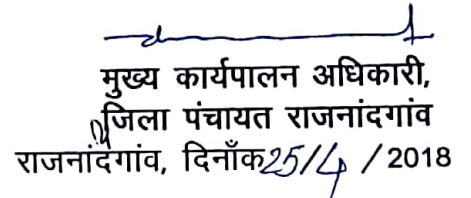 मुख्य कार्यपालन अधिकारी,
जिला पंचायत राजनांदगांव
राजनांदगांव, दिनाँक 25/4 / 2018